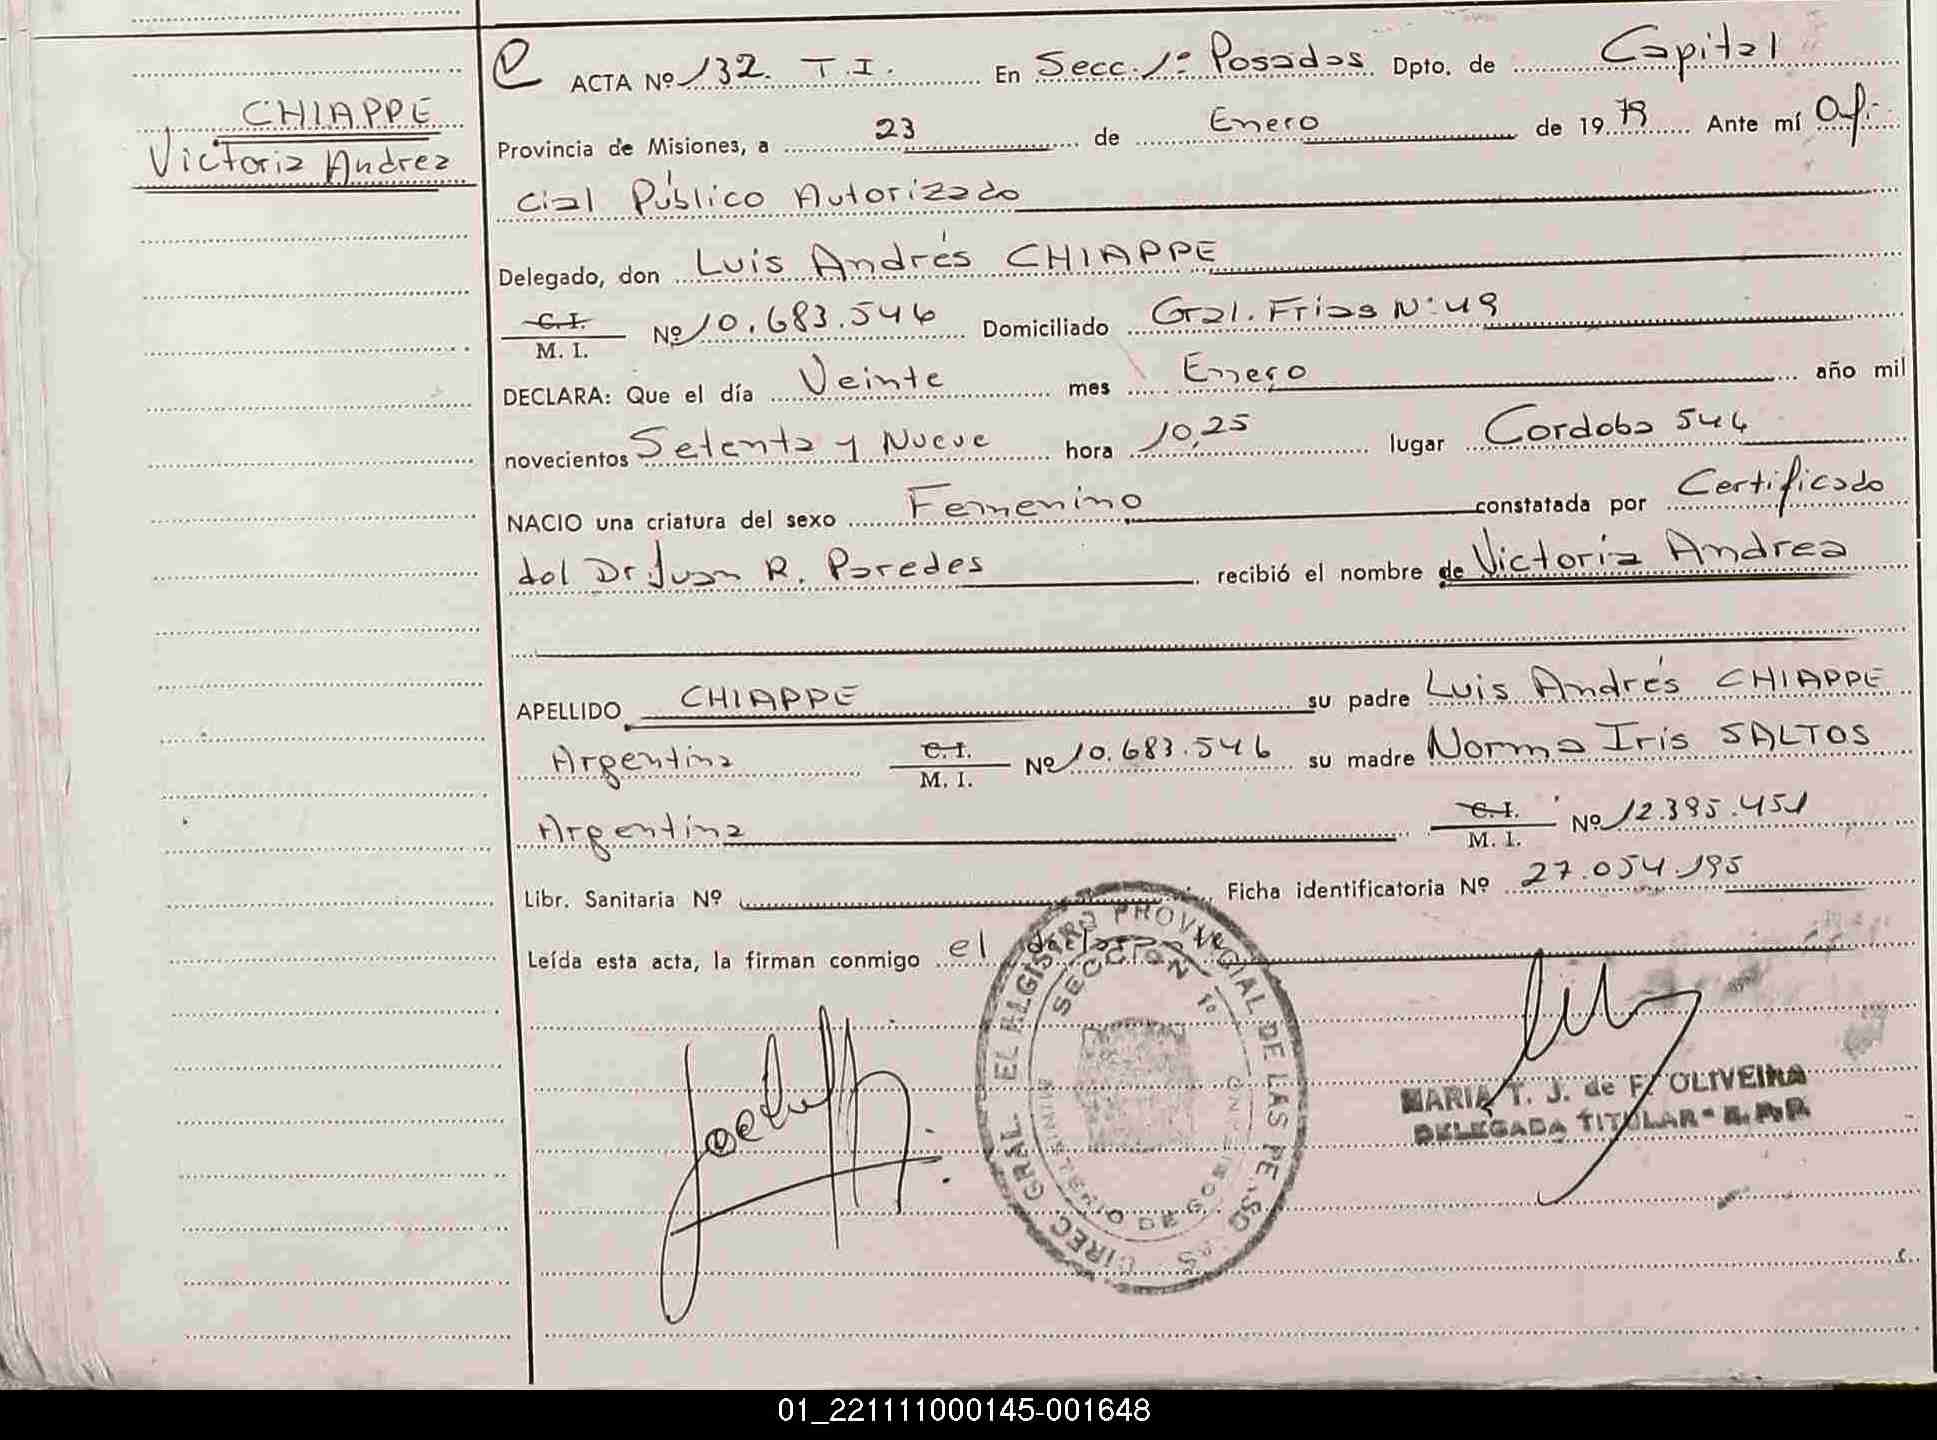 CHIAPPE
Victoria Andrea
ACTA Nº 132. T.I. En Secc. 1º Posadas Dpto. de Capital
Provincia de Misiones, a 23 de Enero de 1979 Ante mí Ofi-
cial Público Autorizado
Delegado, don Luis Andrés CHIAPPE
C. I.
M. I. Nº 10.683.546 Domiciliado Gral. Frias Nº 49
DECLARA: Que el día Veinte mes Enero año mil
novecientos Setenta y Nueve hora 10,25 lugar Cordoba 546
NACIO una criatura del sexo Femenino constatada por Certificado
del Dr. Juan R. Paredes recibió el nombre de Victoria Andrea
APELLIDO CHIAPPE su padre Luis Andrés CHIAPPE
Argentina C. I. M. I. Nº 10.683.546 su madre Norma Iris SALTOS
Argentina C. I. M. I. Nº 12.395.451
Libr. Sanitaria Nº Ficha identificatoria Nº 27.054.195
Leída esta acta, la firman conmigo el declarante
SECCION 1º
MARIA T. J. de F. OLIVEIRA
DELEGADA TITULAR - R. P. P.
01_221111000145-001648